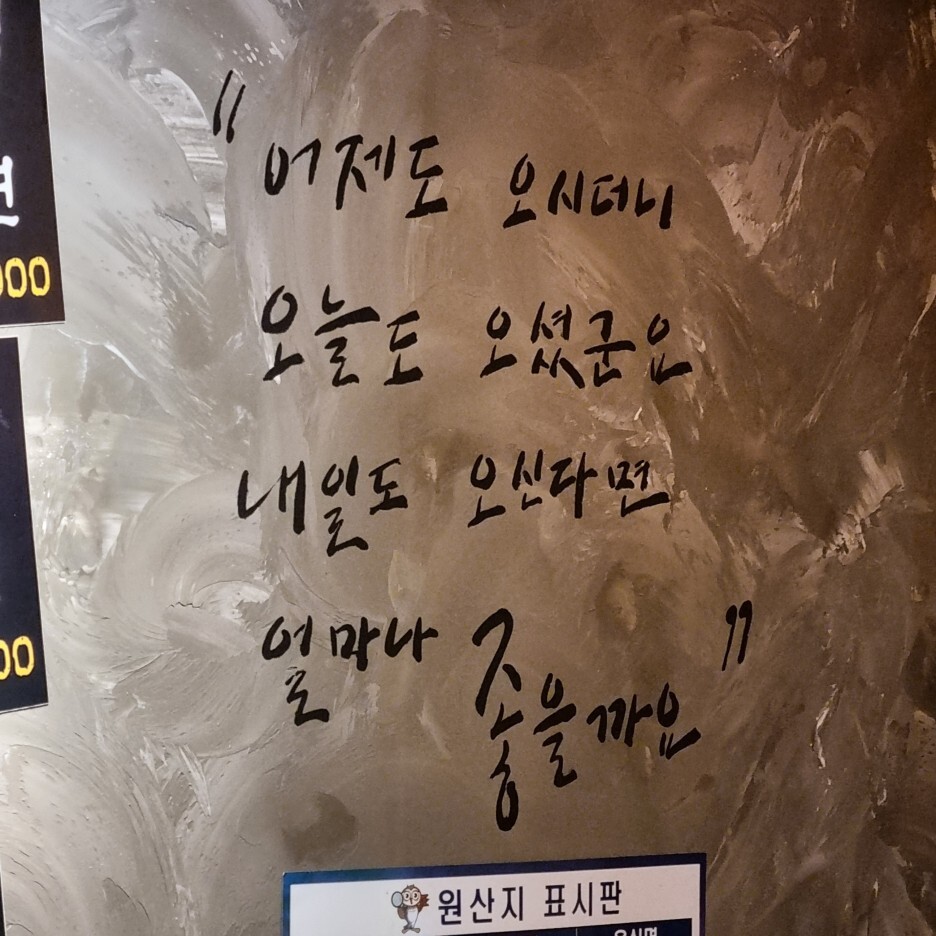 "어제도 오시더니
오늘도 오셨군요
내일도 오신다면
얼마나 좋을까요"
면
000
00
원산지 표시판
음식명